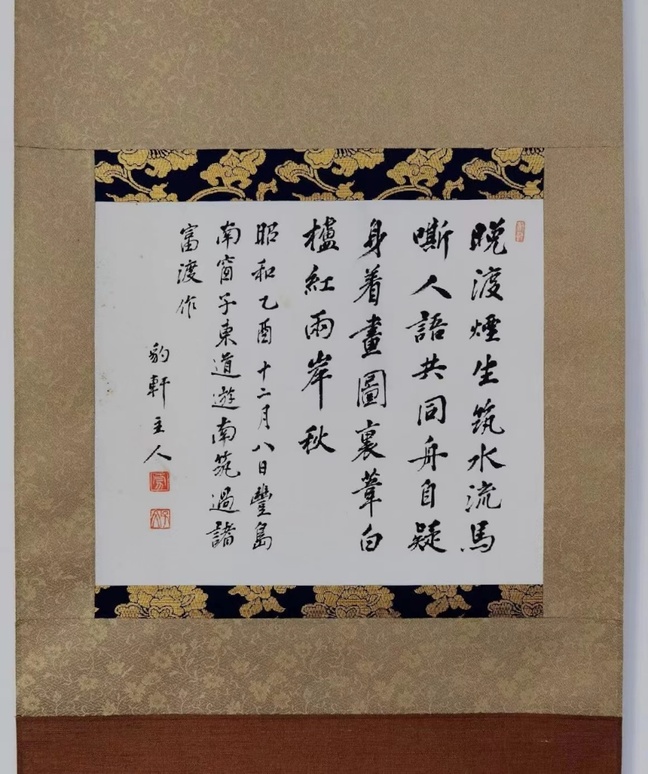 晩渡煙生筑水流馬
嘶人語共同舟自疑
身着畫圖裏葦白
櫨紅兩岸秋
昭和乙酉十二月八日豐島
南窗子東道遊南筑過諸
富渡作
豹軒主人